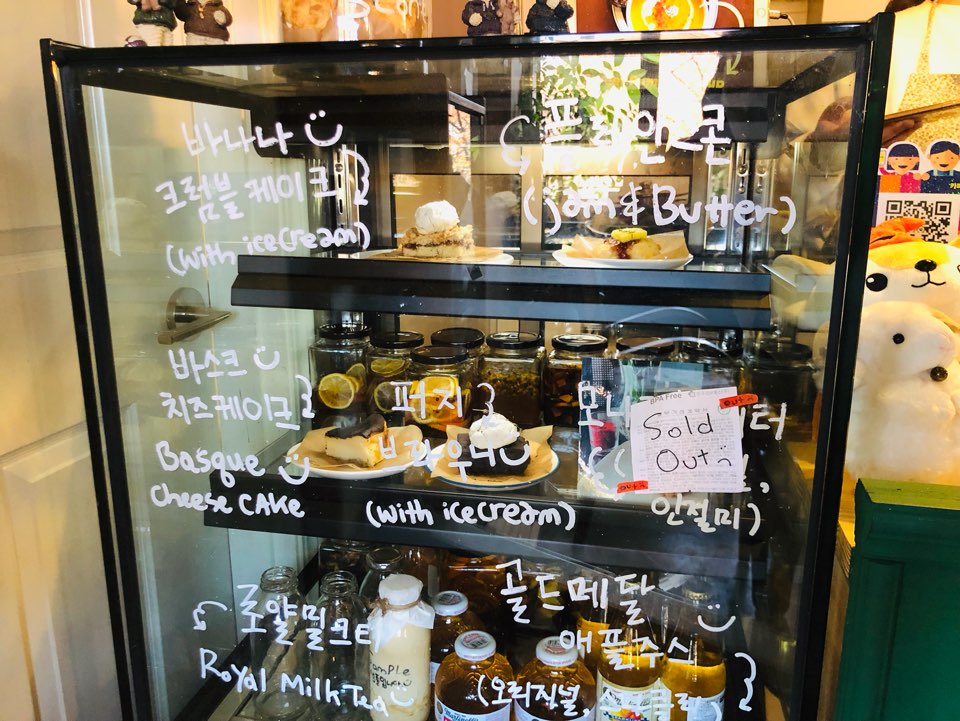 바나나
크럼블케이크
(with icecream)
플레인스콘
(Jam & Butter)
바스크
치즈케이크
Basque
Cheese CAKE
퍼지
브라우니
(with icecream)
BPA Free
Sold
Out
out
out
인절미)
로얄밀크티
Royal Milk Tea
골드메달
애플주스
(오리지널,